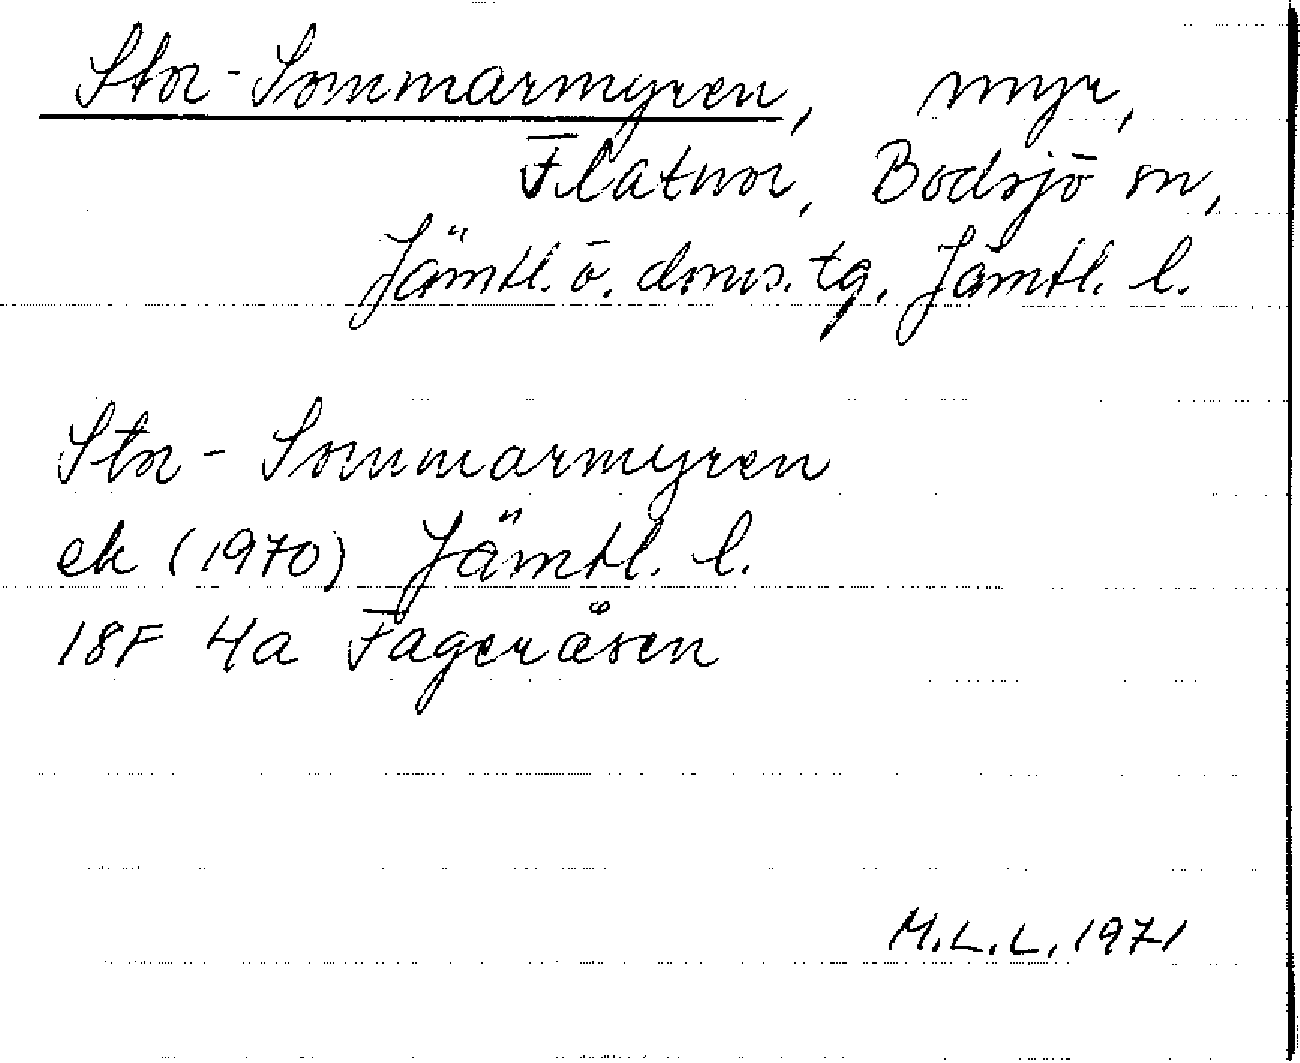 Stor-Sommarmyren, myr,
Flatnor, Bodsjö sn,
Jämtl. ö. doms. tg, Jämtl. l.
Stor- Sommarmyren
ek (1970) Jämtl. l.
18F 4a Fageråsen
M.L.L. 1971